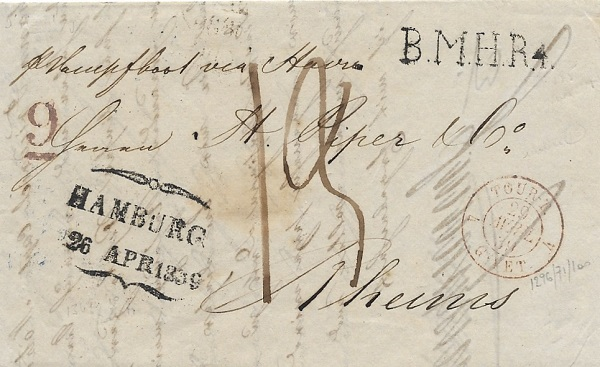 B.M.H.R4.
p Dampfboot via Havre
9
Herren H. Piper & Co
19
HAMBURG
26 APR 1839
TOUR-T
GIVET
Rheims
1296/71/100